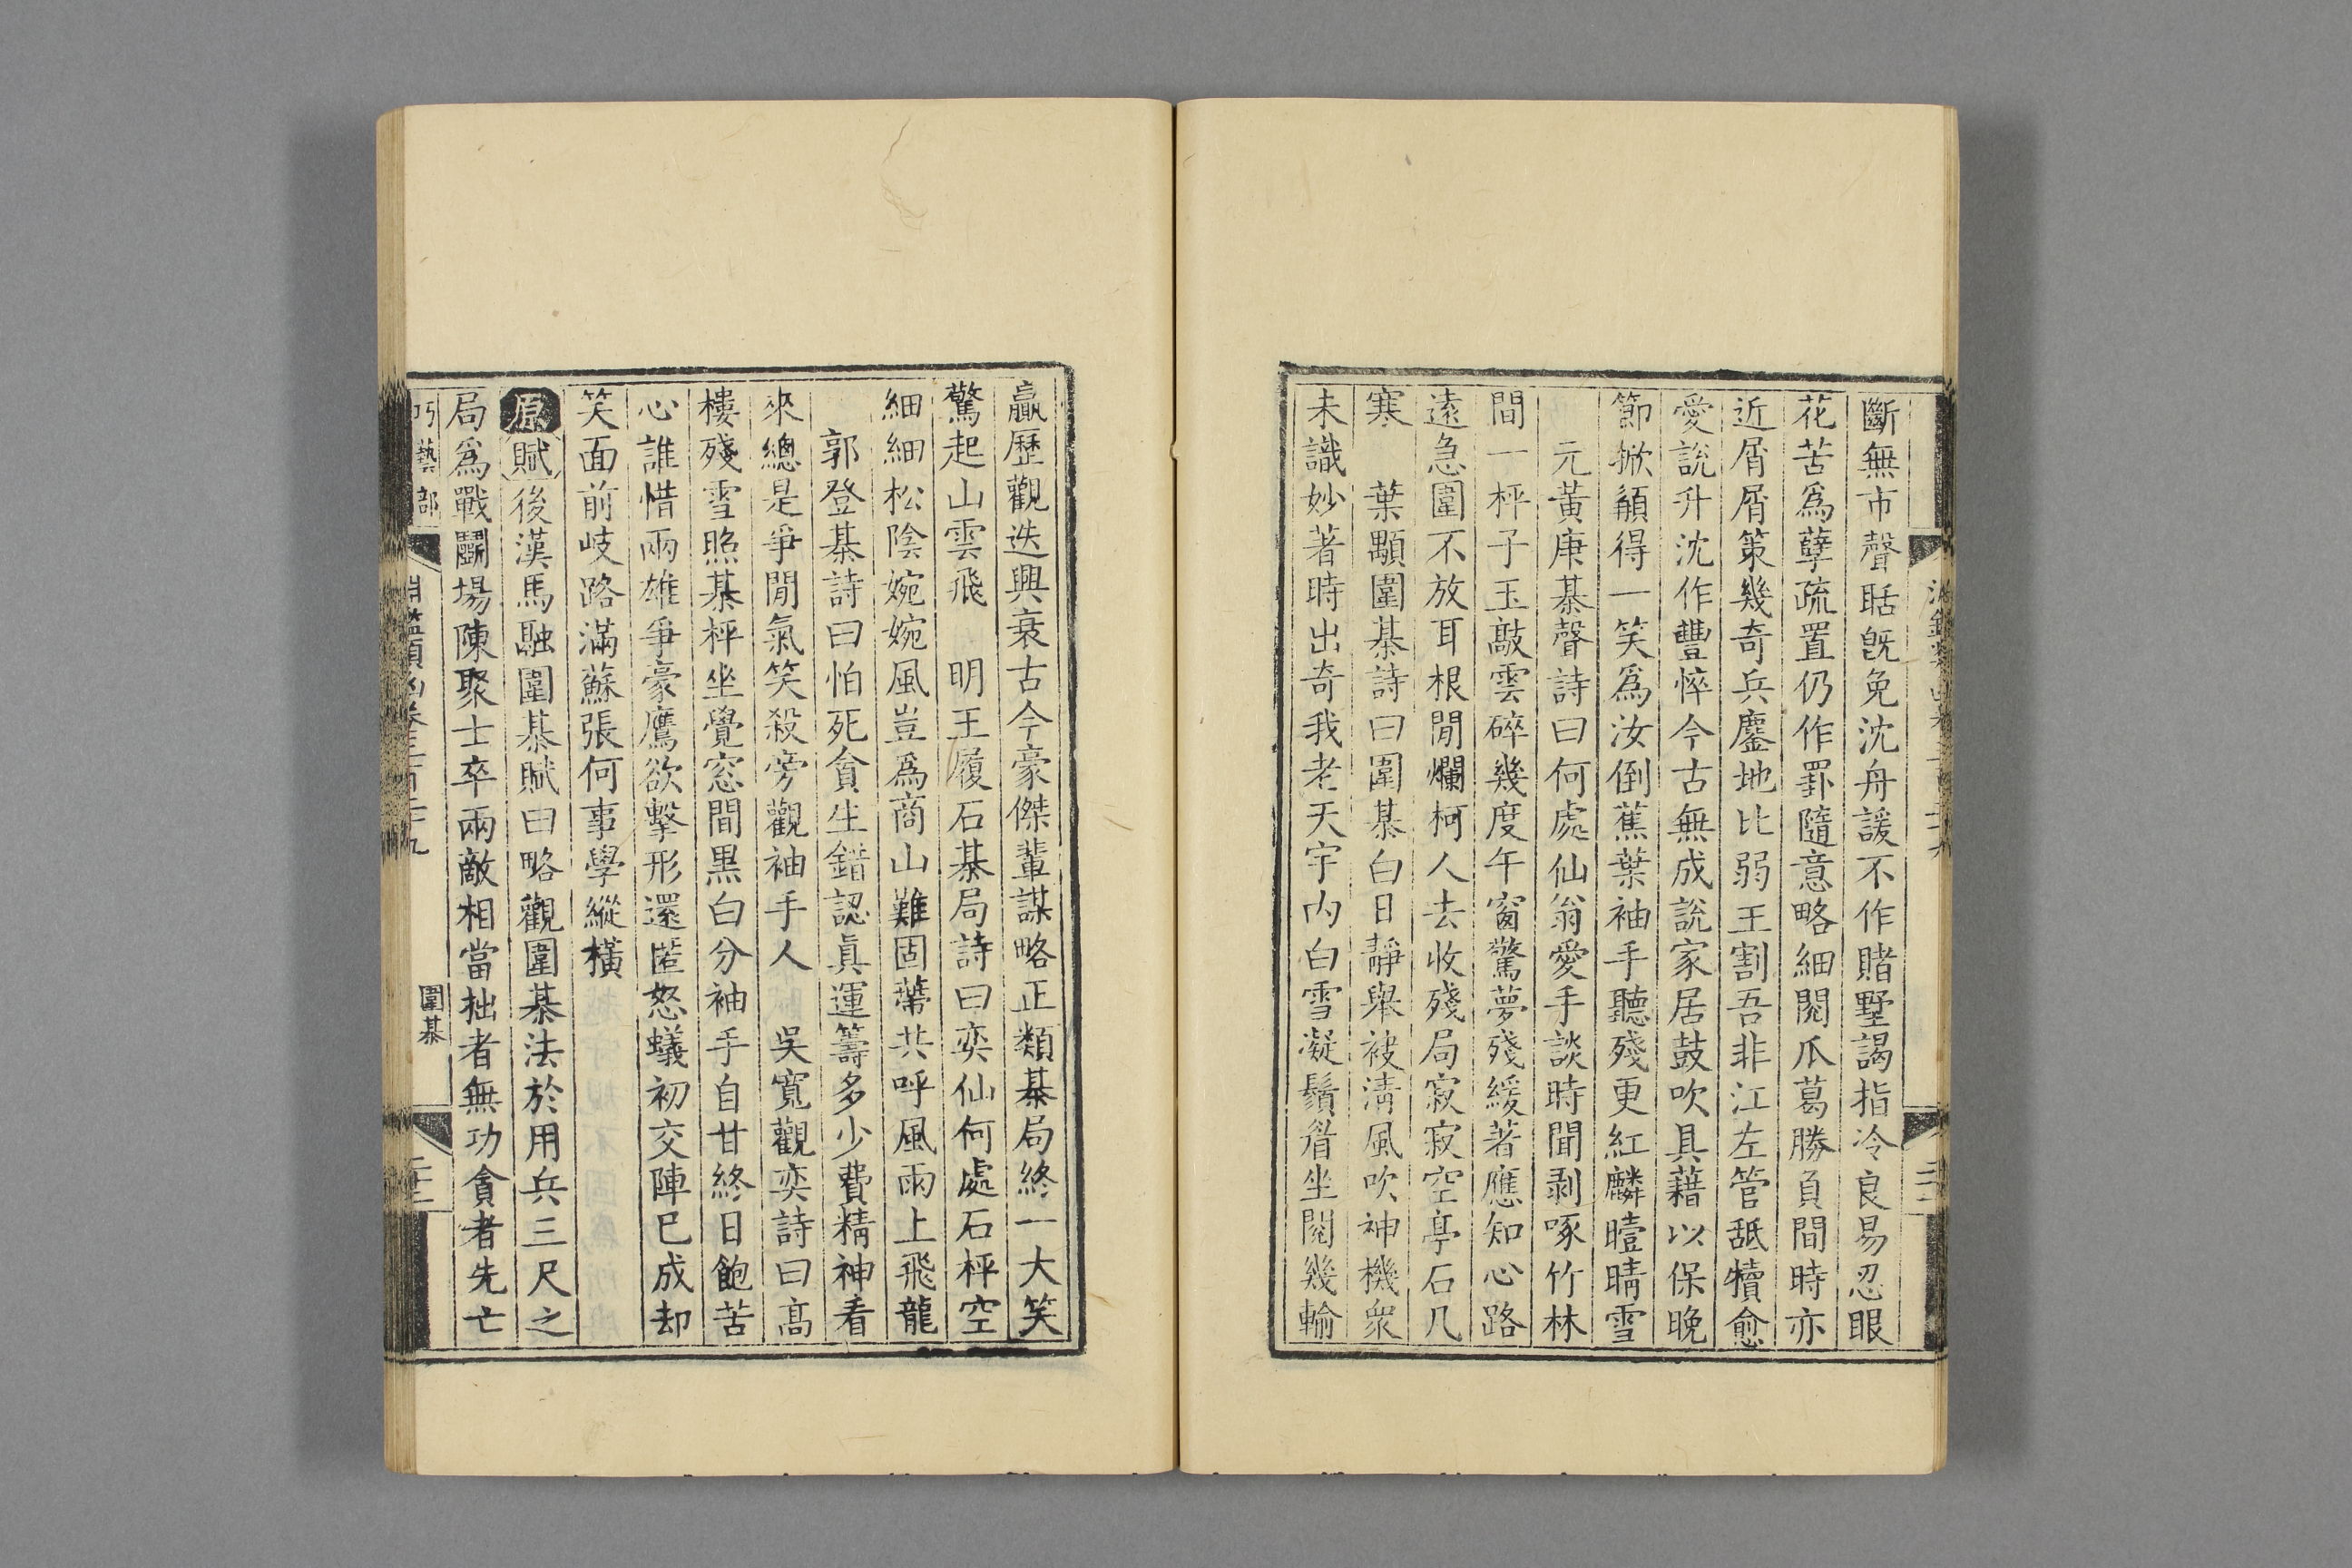 斷無市聲聒旣免沈舟諼不作賭墅謁指冷良易忍眼
花苦爲孽疏置仍作罫隨意略細閱瓜葛勝負間時亦
近屑屑策幾奇兵鏖地比弱王割吾非江左管舐犢愈
愛說升沈作豐悴今古無成說家居鼓吹具藉以保晚
節掀髯得一笑爲汝倒蕉葉袖手聽殘更紅麟曀晴雪
元黃庚棊聲詩曰何處仙翁愛手談時聞剥啄竹林
間一枰子玉敲雲碎幾度午窗驚夢殘緩著應知心路
遠急圍不放耳根閒爛柯人去收殘局寂寂空亭石几
寒 葉顒圍棊詩曰圍棊白日靜舉袂清風吹神機衆
未識妙著時出奇我老天宇內白雪凝鬚眉坐閱幾輸
贏歷觀迭興衰古今豪傑輩謀略正類棊局終一大笑
驚起山雲飛 明王履石棊局詩曰奕仙何處石枰空
細細松陰婉婉風豈爲商山難固蔕共呼風雨上飛龍
郭登棊詩曰怕死貪生錯認眞運籌多少費精神看
來總是爭閒氣笑殺旁觀袖手人 吳寬觀奕詩曰高
樓殘雪照棊枰坐覺窓間黑白分袖手自甘終日飽苦
心誰惜兩雄爭豪鷹欲擊形還匿怒蟻初交陣已成却
笑面前岐路滿蘇張何事學縱橫
原賦後漢馬融圍棊賦曰略觀圍棊法於用兵三尺之
局爲戰鬭場陳聚士卒兩敵相當拙者無功貪者先亡
巧藝部
圍棊